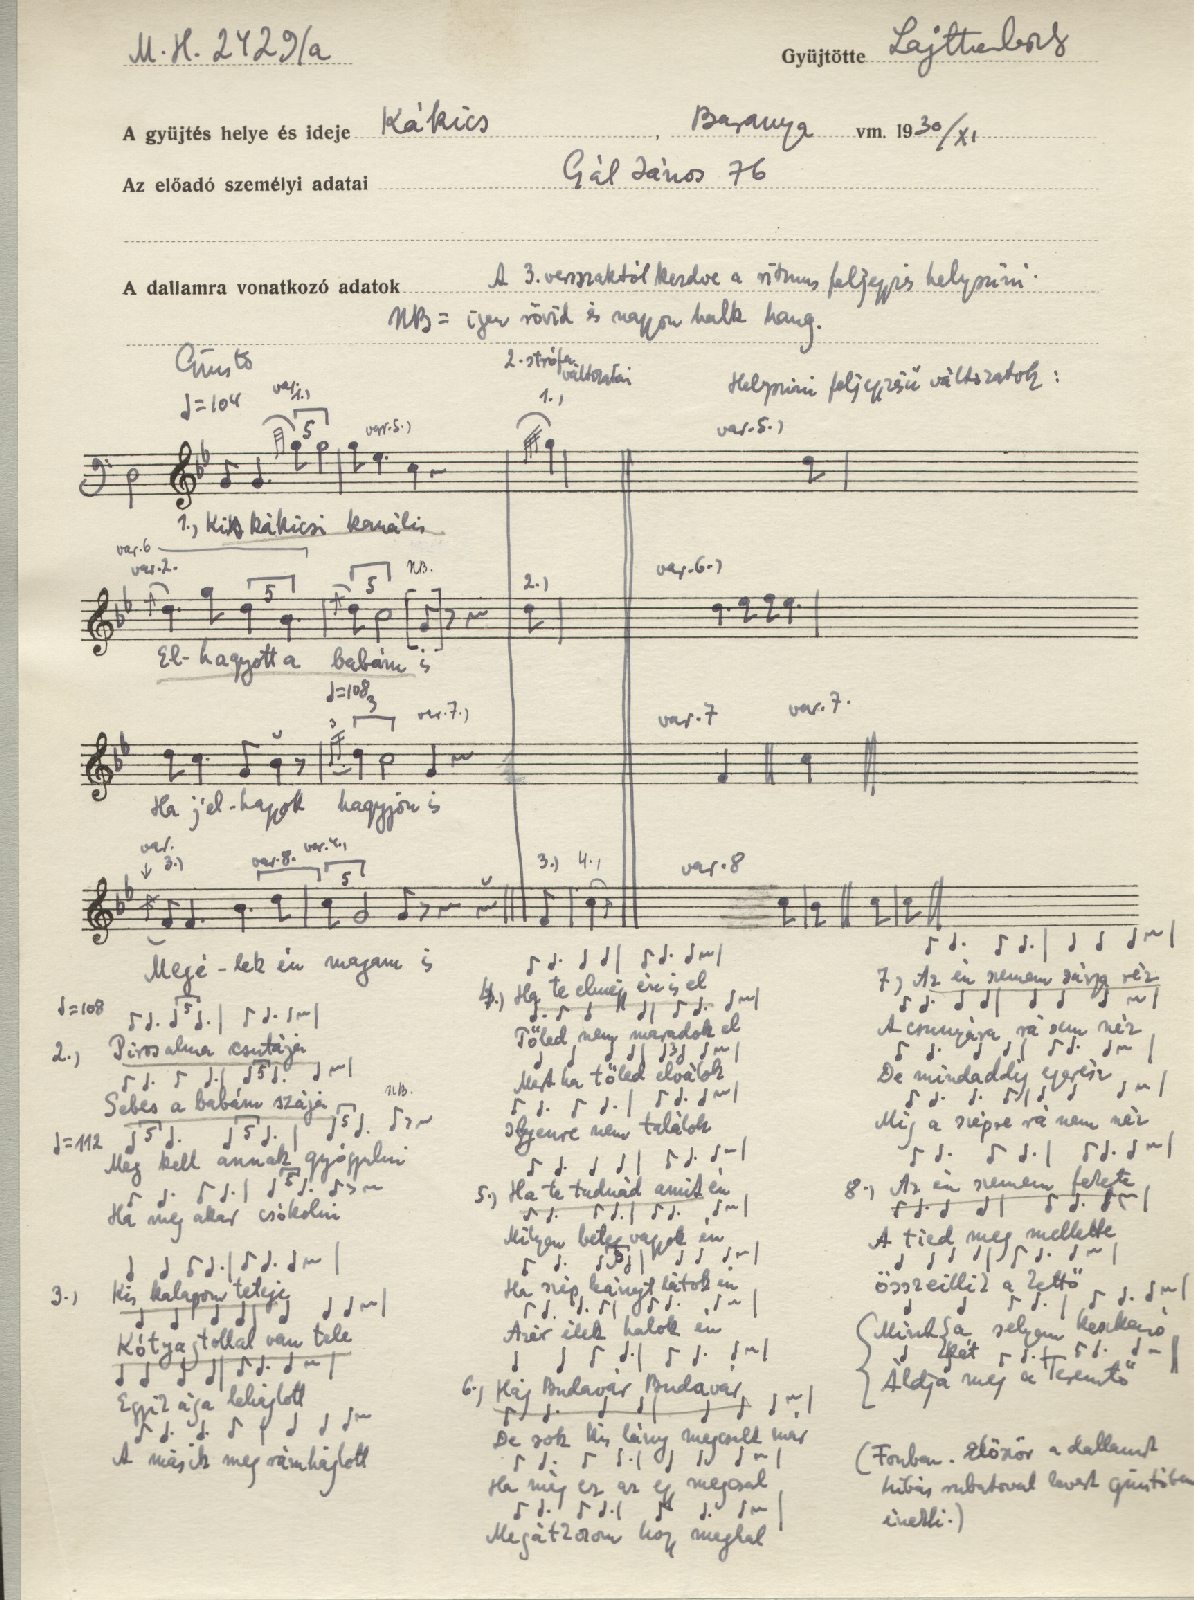 M. H. 2429/a
Gyüjtötte Lajtha László
A gyüjtés helye és ideje Kákics, Baranya vm. 1930/XI
Az előadó személyi adatai Gál János 76
A dallamra vonatkozó adatok A 3. versszaktól kezdve a ritmus feljegyzés helyszini.
NB = igen rövid és nagyon halk hang.
Giusto
2. strófa változatai
Helyszini feljegyzésü változatok:
♩=104
var. 1.,
5
var. 5.,
1.,
var. 5.,
1., Kis kákicsi kanális
var. 6
var. 2.
5
5
NB.
2.,
var. 6.,
El- hagyott a babám is
♩=108
3
var. 7.,
var. 7
var. 7.
Ha j'el-hagyok hagyjon is
var.
3.,
var. 8.
var. 4.,
5
3.,
4.,
var. 8
Megé-lek én magam is
♩=108
2., Piros alma csutája
Sebes a babám szája
NB.
♩=112
Meg kell annak gyógyulni
Ha meg akar csókolni
3., Kis kalapom teteje
Kótyagtollal van tele
Egyik ága lehajlott
A másik meg rámhajlott
4., Ha te elmej én is el
Tőled nem maradok el
Mert ha tőled elválok
Ilyenre nem találok
5., Ha te tudnád amit én
Milyen beteg vagyok én
Ha szép leányt látok én
Azér élek halok én
6., Háj Budavár Budavár
De sok kis lány megcsalt már
Ha még ez az egy megcsal
Megátkozom hogy meghal
7., Az én szemem sárga réz
A csunyára rá sem néz
De mindaddig egerész
Mig a szépre rá nem néz
8., Az én szemem fekete
A tied meg mellette
összeillik a kettő
Mink a selyem keszkenő
Áldja meg a Teremtő
(Fonban. Először a dallamot
hibás rubatoval lovast giustóban
énekli.)